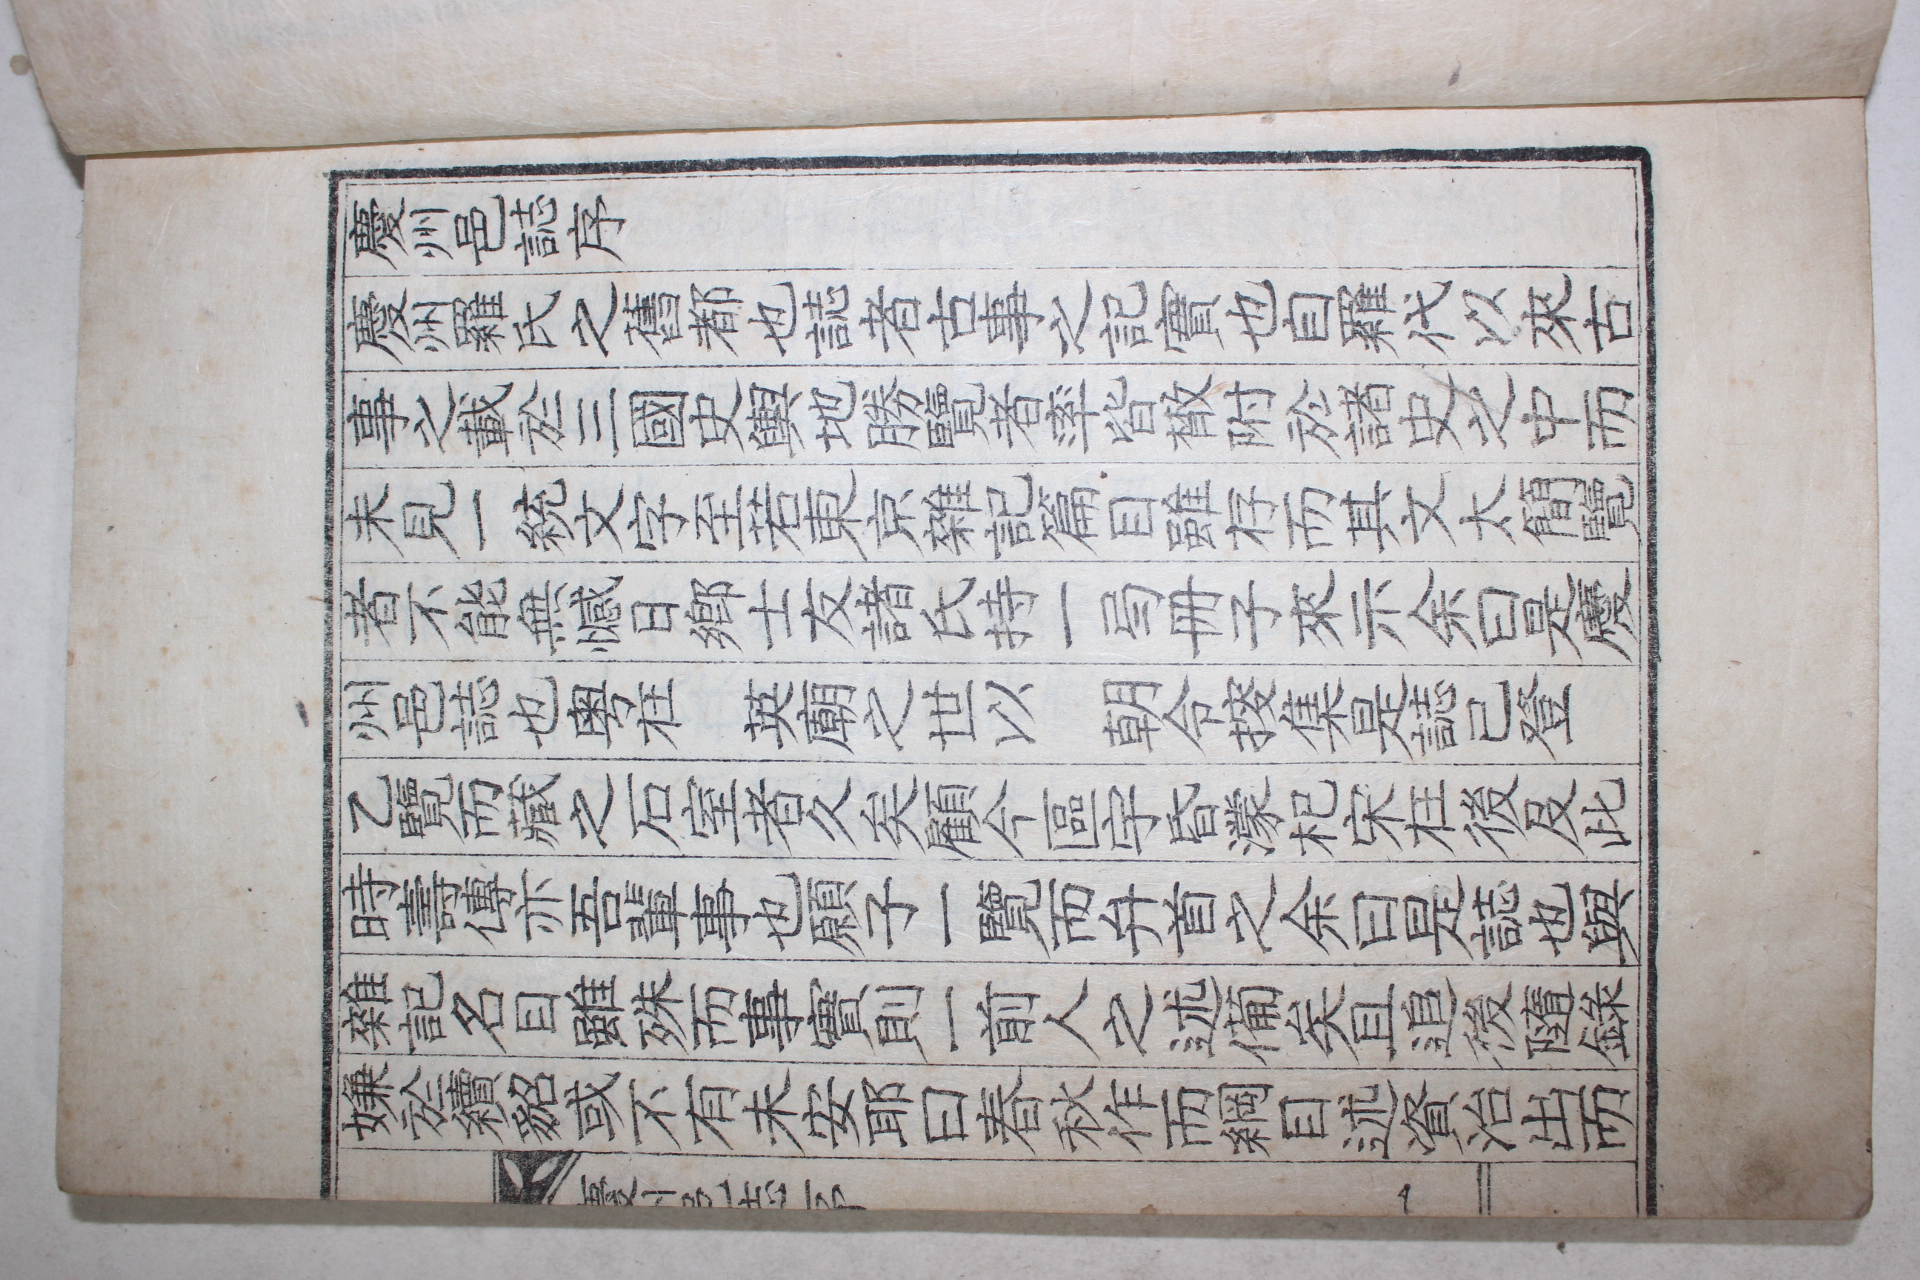 慶州邑誌序
慶州羅氏之舊都也誌者古事之記實也自羅代以來古
事之載於三國史輿地勝覽者率皆散附於諸史之中而
未見一統文字至若東京雜記篇目雖存而其文太簡覽
者不能無憾日鄕士友諸氏持一号冊子來示余曰是慶
州邑誌也粤在 英廟之世以 朝令掇集是誌已登
乙覽而藏之石室者久矣顧今區宇昏濛杞宋在後及比
時壽傳亦吾輩事也願子一覽而弁首之余曰是誌也與
雜記名目雖殊而事實則一前人之述備矣且追後隨錄
嫌於續貂或不有未安耶曰春秋作而綱目述資治出而
慶州邑誌序 一